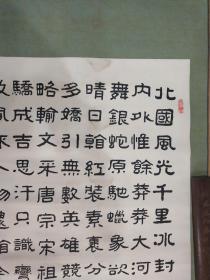 北國風光千里冰封
内外惟餘莽莽大河
舞銀蛇原馳蠟象欲
晴日看紅裝素裹分
多嬌引無數英雄競
略輸文采唐宗宋
驕成吉思汗只識彎
風流人物還